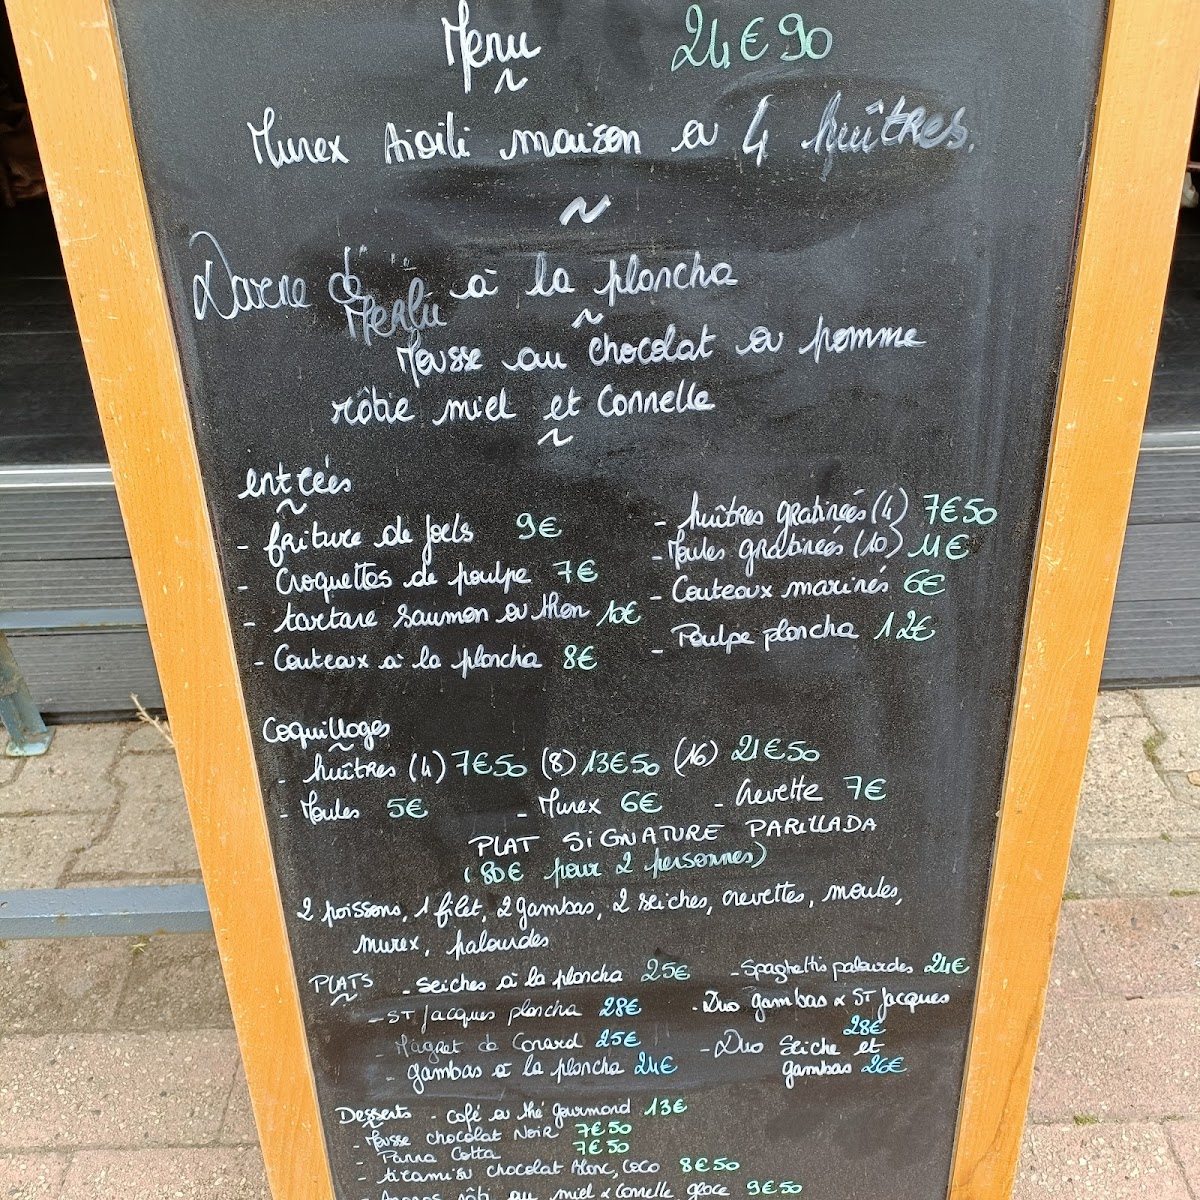 Menu 24€90
Murex Aioili maison ou 4 huîtres.
Darne de Merlu à la plancha
Mousse au chocolat ou pomme
rôtie miel et Cannelle
entrées
- friture de Joels 9€
- Croquettes de poulpe 7€
- tartare saumon ou thon 10€
- Couteaux à la plancha 8€
- huîtres gratinées (4) 7€50
- Moules gratinées (10) 11€
- Couteaux marinés 6€
- Poulpe plancha 12€
Coquillages
- huîtres (4) 7€50 (8) 13€50 (16) 21€50
- Moules 5€ - Murex 6€ - Crevette 7€
PLAT SiGNATURE PARILLADA
(80€ pour 2 personnes)
2 poissons, 1 filet, 2 gambas, 2 seiches, crevettes, moules,
murex, palourdes
PLATS - Seiches à la plancha 25€ - Spaghettis palourdes 24€
- ST Jacques plancha 28€ - Duo gambas & ST Jacques
28€
- Magret de Canard 25€ - Duo Seiche et
- gambas à la plancha 24€ gambas 26€
Desserts - café ou thé gourmand 13€
- Mousse chocolat Noir 7€50
- Panna Cotta 7€50
- tiramisu chocolat Blanc, Coco 8€50
- rôti au miel & Cannelle glace 9€50